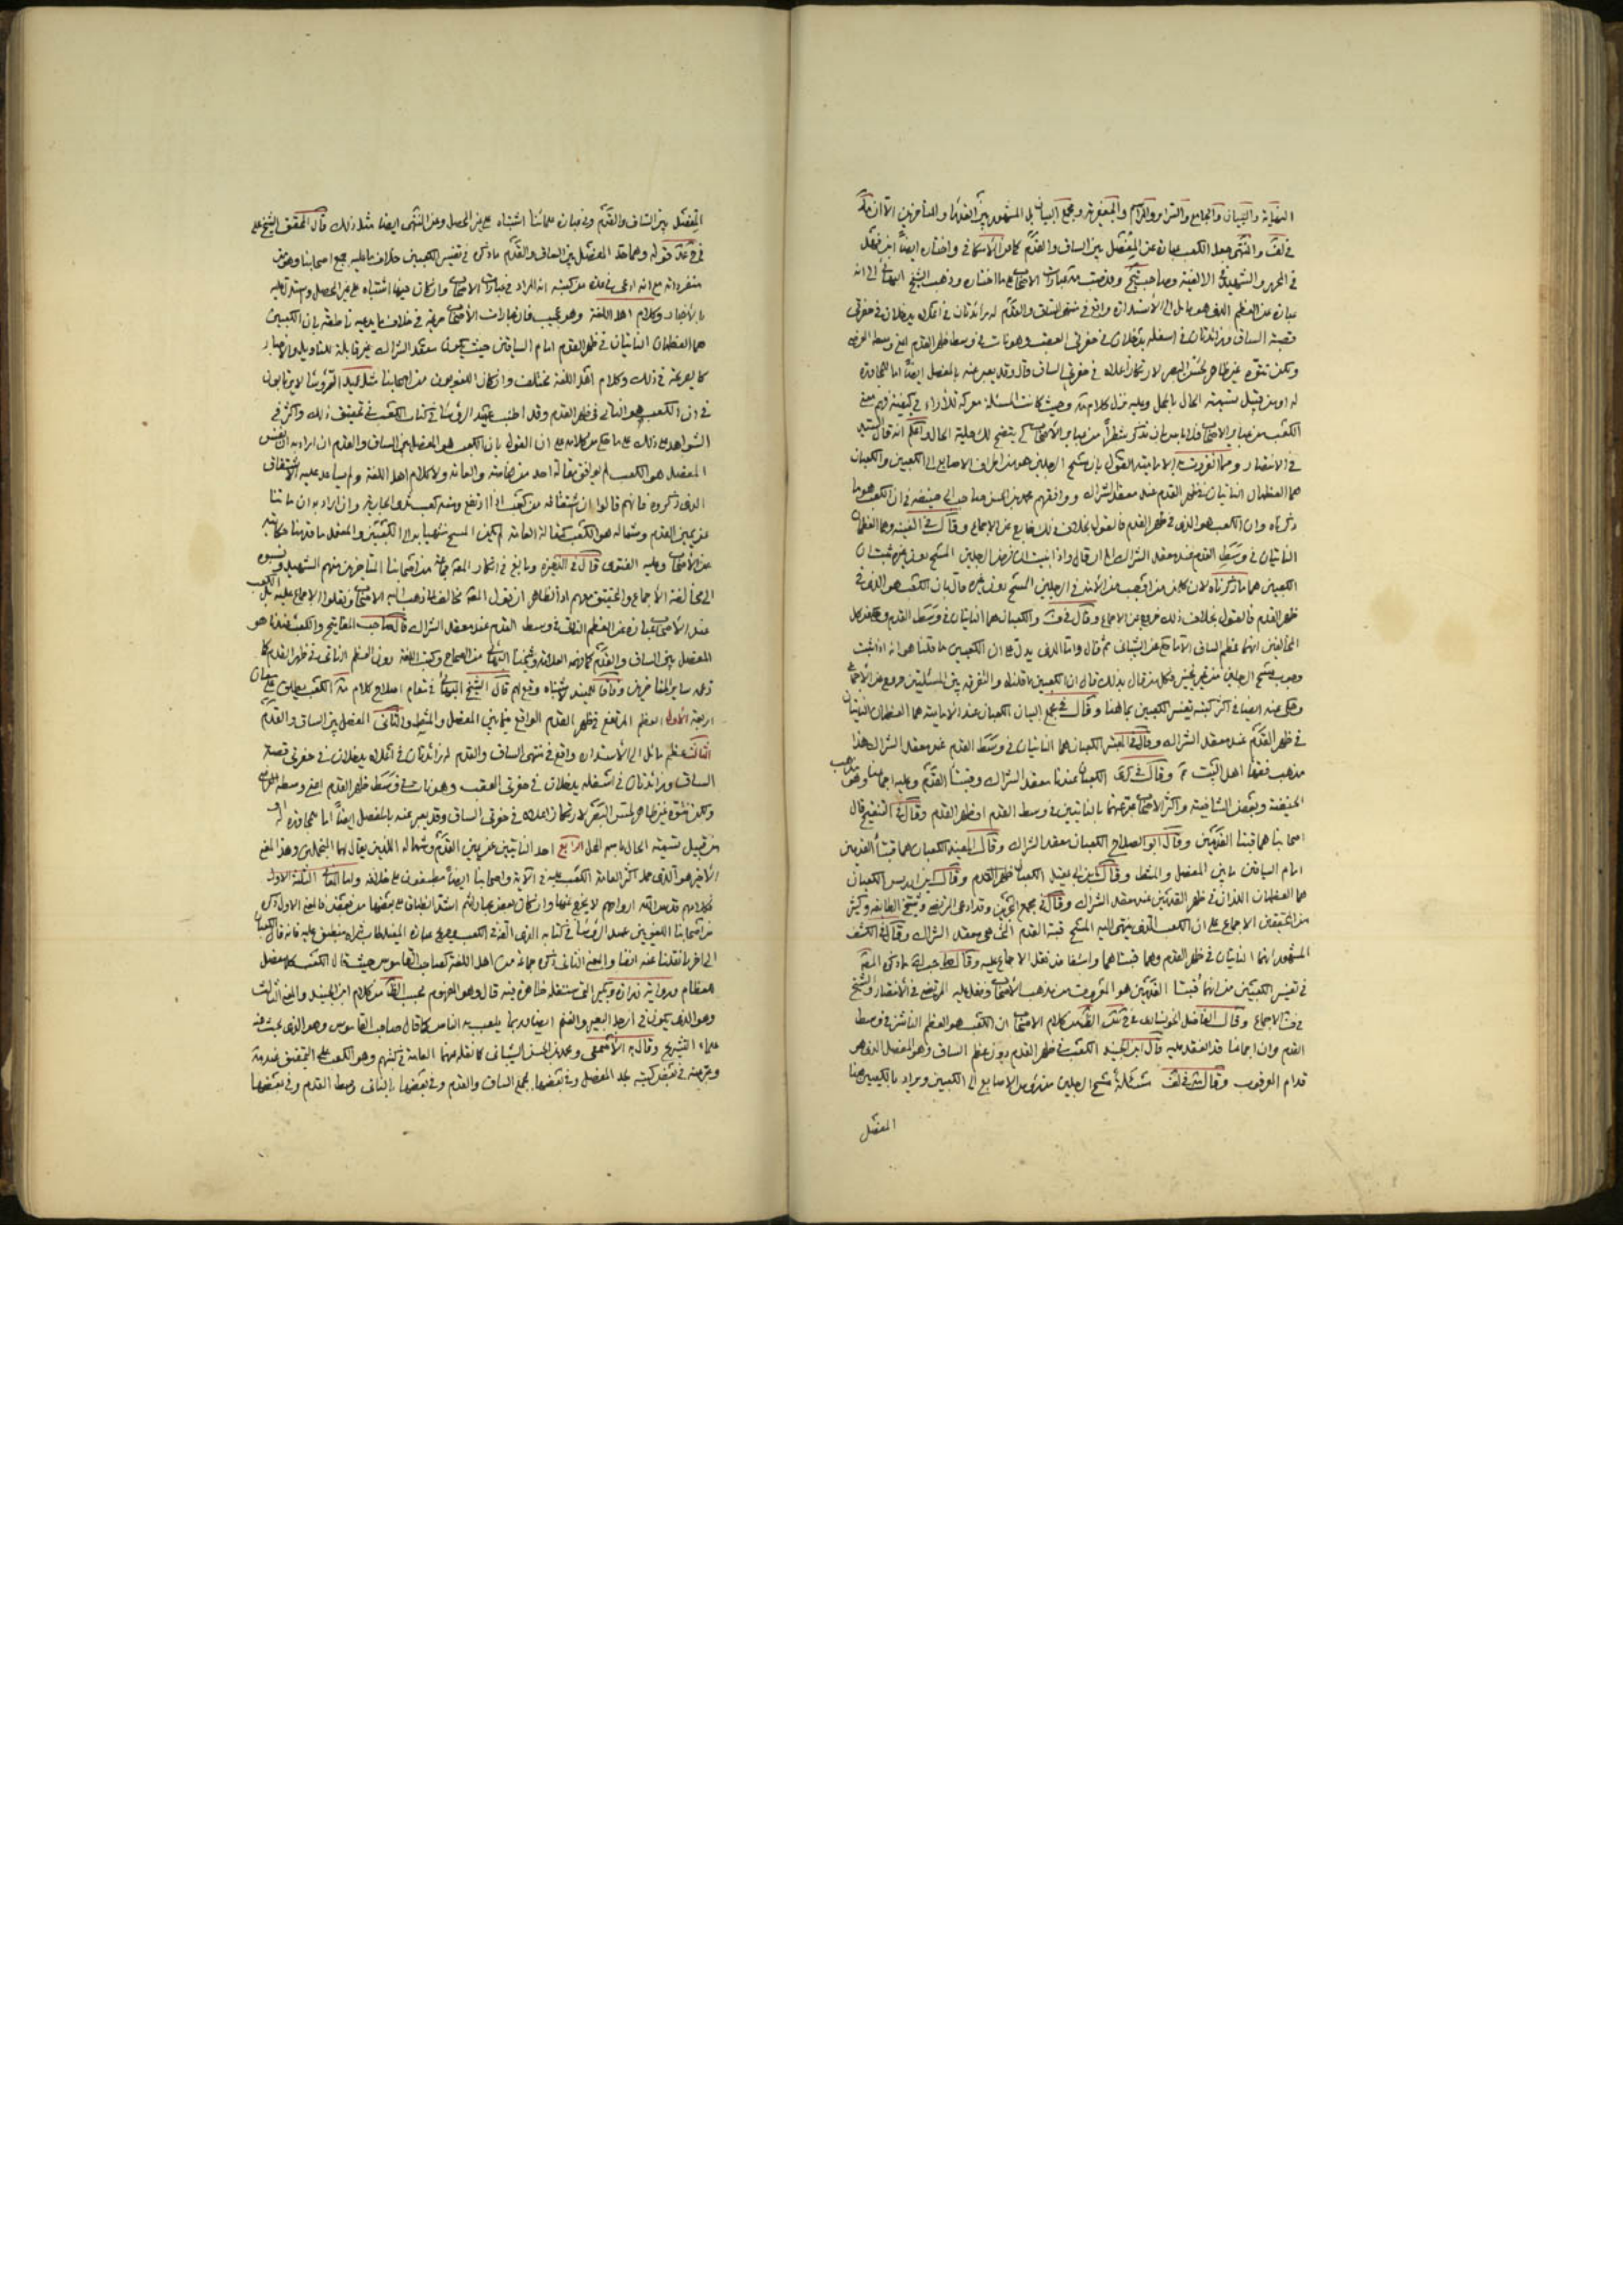 النهاية والتبيان والجامع والسرائر والمراسم والجعفرية ومجمع البيان بل المشهور بين القدماء والمتأخرين الا ان
في لف والمنتهى جعل الكعب عبارة عن المفصل بين الساق والقدم واختاره ايضاً
في الالفية وصاحب عبارات الاصحاب على ما اختاره وذهب الشيخ البهائي الى انه
عبارة عن العظم الذي هو مائل الى الاستدارة واقع في منتهى الساق والقدم له زائدتان في اعلاه يدخلان في حفرتي
قصبة الساق وزائدتان في اسفله يدخلان في حفرتي العقب وهو نات في وسط ظهر القدم اعني وسطه العرضي
ولكن نتوه غير ظاهر لحس البصر لارتكاز اعلاه في حفرتي الساق قال وقد يعبر عنه بالمفصل ايضاً اما للمجاورة
له او من قبيل تسمية الحال باسم المحل وعليه نزل كلام وحيث كانت المسئلة معركة للآراء
الكعب من عباير الاصحاب فلا باس بان نذكر شطراً من عباير الاصحاب كي يتضح لك حلية الحال انه قال السيد
في الانتصار ومما انفردت به الامامية القول بان مسح الرجلين هو من اطراف الاصابع الى الكعبين والكعبان
هما العظمان الناتيان في ظهر القدم عند معقد الشراك ووافقهم محمد بن الحسن صاحب ابي حنيفة في ان الكعب هو ما
ذكرناه وان الكعب هو الذي في ظهر القدم فالقول بخلاف ذلك خارج عن الاجماع وقال في الغنية وهما العظمان
الناتيان في وسط القدم عند معقد الشراك الى ان قال واذا ثبت ان فرض الرجلين المسح دون غيره ثبت ان
الكعبين هما ما ذكرناه لان كل من اوجب من الامة في الرجلين المسح دون غيره قال بان الكعب هو الذي في
ظهر القدم فالقول بخلاف ذلك خروج عن الاجماع وقال في والكعبان هما الناتيان في وسط القدم
انهما عظم الساق الا ما حكي عن الشيباني ثم قال واما الذي يدل على ان الكعبين ما قلنا هو انه اذا ثبت
وجوب مسح الرجلين من غير تخيير فكل من قال بذلك قال ان الكعبين ما قلناه والتفرقة بين المسئلتين خروج عن الاجماع
وحكي عنه ايضا في اكثر كتبه تفسير الكعبين بما هنا وقال في مجمع البيان الكعبان عند الامامية هما العظمان الناتيان
في ظهر القدم عند معقد الشراك وقال في المعتبر الكعبان هما الناتيان في وسط القدم عند معقد الشراك هذا
مذهب فقهاء اهل البيت وقال في كرى الكعبان عندنا معقد الشراك وقبتا القدم وعليه اجماعنا وهو مذهب
الحنفية وبعض الشافعية واكثر الاصحاب عبر عنهما بالناتيين في وسط القدم او ظهر القدم وقال في التنقيح قال
اصحابنا هما قبتا القدمين وقال ابو الصلاح الكعبان معقد الشراك وقال المفيد الكعبان هما قبتا القدمين
امام الساقين ما بين المفصل والمشط وقال ابن ابي عقيل الكعبان ظهر القدم وقال ابن ادريس الكعبان
هما العظمان اللذان في ظهر القدمين عند معقد الشراك وقال في مجمع البحرين وقد ادعى المرتضى وشيخ الطايفة وكثير
من المحققين الاجماع على ان الكعب الذي ينتهي اليه المسح قبة القدم التي هي معقد الشراك وقال في الكشف
المشهور انهما الناتيان في ظهر القدم وهما قبتاهما واستفاض نقل الاجماع عليه وقال ما ذكره
في تفسير الكعبين من انهما قبتا القدمين هو المعروف من مذهب الاصحاب ونقل عليه المرتضى في الانتصار والشيخ
في الاجماع وقال الفاضل كلام الاصحاب ان الكعب هو العظم الناشز في وسط
القدم وان اجماعنا قد انعقد عليه قال ابن الجنيد الكعب في ظهر القدم دون عظم الساق وهو المفصل الذي هو
قدام العرقوب وقال في لف مسئلة مسح الرجلين من رؤس الاصابع الى الكعبين ويراد بالكعبين هنا
المفصل
المفصل بين الساق والقدم وفي عبارة علمائنا اشتباه على غير المحصل وعن المنتهى ايضا مثل ذلك قال المحقق الشيخ علي
في قوله وهما حد المفصل بين الساق والقدم ما ذكره في تفسير الكعبين خلاف ما عليه جميع اصحابنا وهو من
متفرداته مع انه ادعى في من كتبه انه المراد في عبارات الاصحاب وان كان فيها اشتباه على غير المحصل واستدل عليه
بالاخبار وكلام اهل اللغة وهو عجيب فان عبارات الاصحاب صريحة في خلاف ما يدعيه ناطقة بان الكعبين
هما العظمان الناتيان في ظهر القدم امام الساقين حيث يكون معقد الشراك غير قابلة للتاويل والاخبار
كالصريحة في ذلك وكلام اهل اللغة مختلف وان كان اللغويون من اصحابنا مثل عميد الرؤساء لا يرتابون
في ان الكعب هو الناتي في ظهر القدم وقد اطنب عميد الرؤساء في كتاب الكعب في تحقيق ذلك واكثر في
الشواهد على ذلك على ما حكي من كلامه على ان القول بان الكعب هو المفصل بين الساق والقدم ان اراد به ان نفس
المفصل هو الكعب لم يوافق مقالة احد من الخاصة والعامة ولا كلام اهل اللغة ولم يساعد عليه الاشتقاق
الذي ذكروه فانهم قالوا ان اشتقاقه من كعب اذا ارتفع ومنه كعب ثدي الجارية وان اراد به ان ما نتا
عن يمين القدم وشماله هو الكعب كمقالة العامة لم يكن المسح منتهيا به الى الكعبين والمعتمد ما قدمنا حكايته
عن الاصحاب وعليه الفتوى قال في الذخيرة وبالغ في انكار جماعة من اصحابنا المتأخرين منهم الشهيد ونسبوه
الى مخالفة الاجماع والتحقيق معهم اذ الظاهر ان قول مخالف لما ذهب اليه الاصحاب ونقلوا الاجماع عليه بل الكعب
عند الاصحاب عبارة عن العظم الناتي في وسط القدم عند معقد الشراك قال صاحب المفاتيح والكعب عندنا هو
المفصل بين الساق والقدم كما فهمه العلامة وشيخنا البهائي من الصحاح وكتب اللغة دون العظم الناتي في ظهر القدم كما
زعمه ساير المتاخرين وفاقا للمفيد لاشتباه وقع لهم قال الشيخ البهائي في مقام اصلاح كلام الكعب يطلق على معان
اربعة الاول العظم المرتفع في ظهر القدم الواقع فيما بين المفصل والمشط والثاني المفصل بين الساق والقدم
الثالث عظم مائل الى الاستدارة واقع في منتهى الساق والقدم له زائدتان في اعلاه يدخلان في حفرتي قصبة
الساق وزائدتان في اسفله يدخلان في حفرتي العقب وهو نات في وسط ظهر القدم اعني وسطه العرضي
ولكن نتوه غير ظاهر لحس البصر لارتكاز اعلاه في حفرتي الساق وقد يعبر عنه بالمفصل ايضاً اما لمجاورته او
من قبيل تسمية الحال باسم المحل الرابع احد الناتيين عن يمين القدم وشماله اللذين يقال لهما المنجمين وهذا المعنى
الاخير هو الذي حمله اكثر العامة الكعب عليه في الآية واصحابنا ايضاً مطبقون على خلافه واما المعاني الثلثة الاول
فكلامهم قدس الله ارواحهم لا يخرج عنها وان كان بعض عباراتهم اشد انطباقا على بعضها من بعض فالمعنى الاول ذكره
من اصحابنا اللغويين عميد الرؤساء في كتابه الذي الفه في الكعب وصريح عبارة المفيد طاب ثراه منطبق عليه فانه قال الكعبان
الى اخر ما نقلنا عنه انفا والمعنى الثاني ذكره جماعة من اهل اللغة كصاحب القاموس حيث قال الكعب كل مفصل
للعظام ورواية زرارة وبكير التي ستنقله ظاهرة فيه قال وهو المفهوم بحسب الظاهر من كلام ابن الجنيد والمعنى الثالث
وهو الذي يكون في ارجل البقر والغنم ايضا وربما يلعب به الناس كما قال صاحب القاموس وهو الذي بحث عنه
علماء التشريح وقال به الاصمعي ومحمد بن الحسن الشيباني كما نقله عنهما العامة في كتبهم وهو الكعب على التحقيق عند
وعبر عنه في بعض كتبه بحد المفصل وفي بعضها بمجمع الساق والقدم وفي بعضها بالناتي وسط القدم وفي بعضها